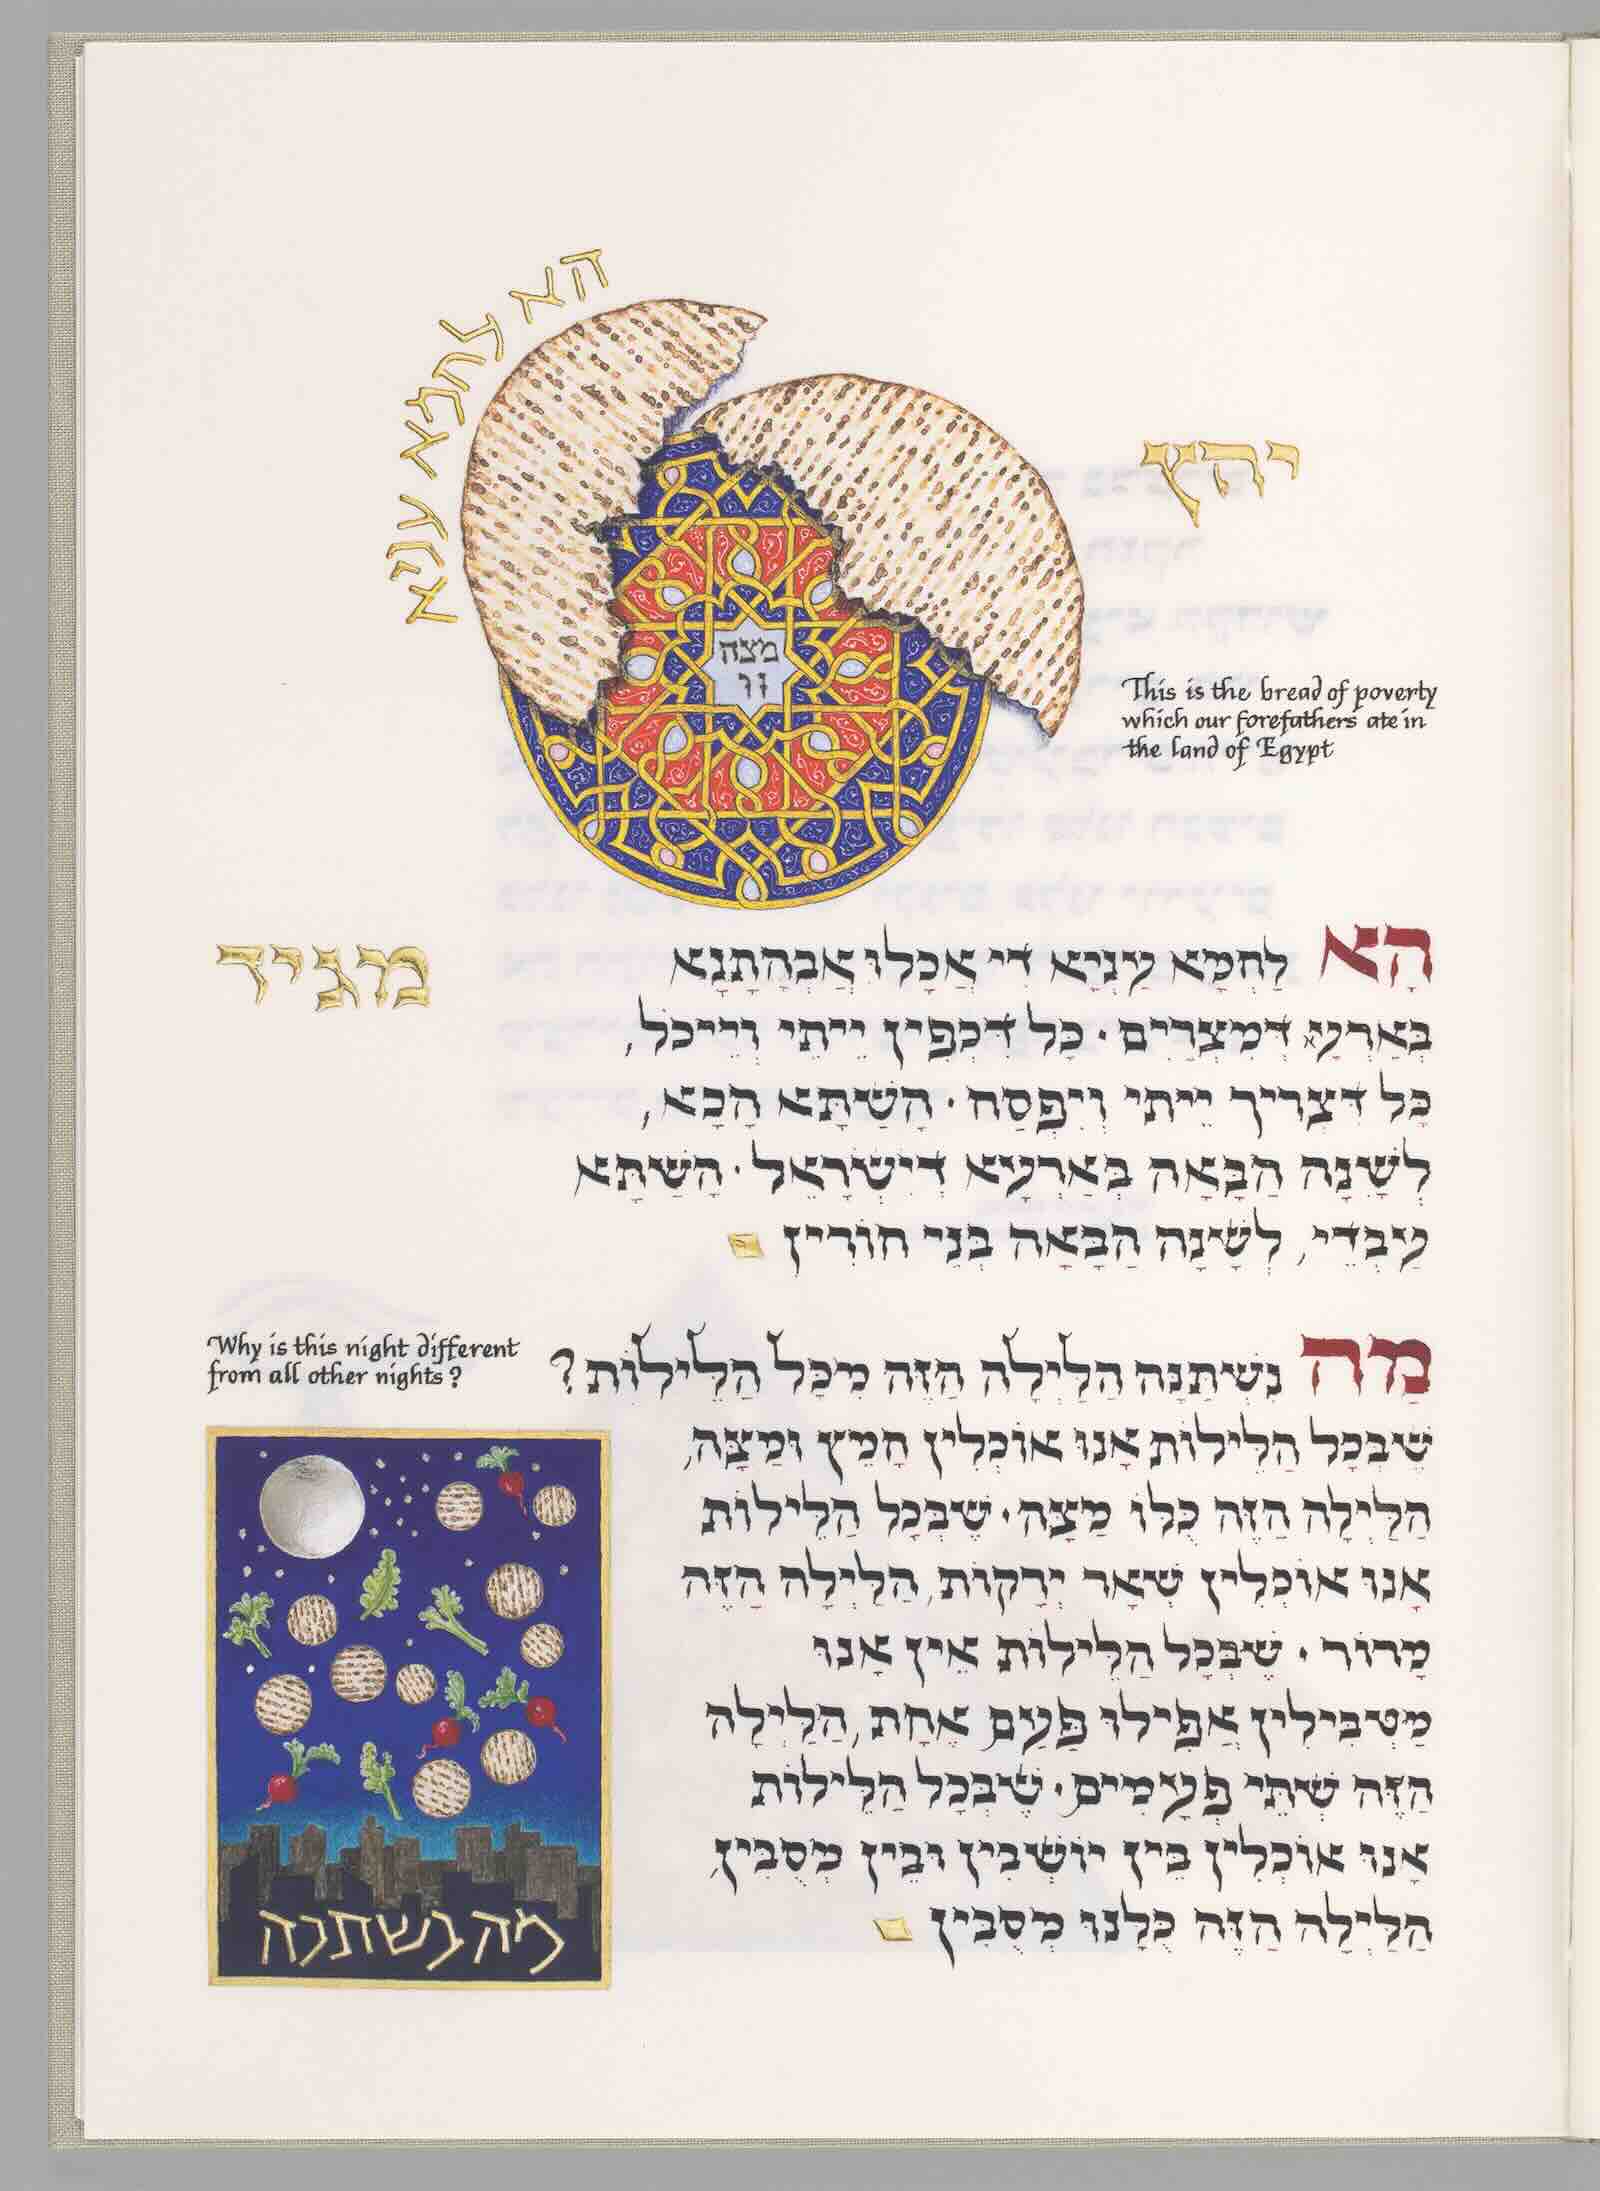 הא לחמא עניא
יחץ
מצה
זו
This is the bread of poverty
which our forefathers ate in
the land of Egypt
מגיד
הָא לַחְמָא עַנְיָא דִי אֲכָלוּ אֲבְהָתָנָא
בְּאַרְעָא דְמִצְרַיִם · כָּל דִּכְפִין יֵיתֵי וְיֵיכֹל,
כָּל דִּצְרִיךְ יֵיתֵי וְיִפְסַח · הָשַׁתָּא הָכָא,
לְשָׁנָה הַבָּאָה בְּאַרְעָא דְיִשְׂרָאֵל · הָשַׁתָּא
עַבְדֵי, לְשָׁנָה הַבָּאָה בְּנֵי חוֹרִין
Why is this night different
from all other nights?
מַה נִּשְׁתַּנָּה הַלַּיְלָה הַזֶּה מִכָּל הַלֵּילוֹת?
שֶׁבְּכָל הַלֵּילוֹת אָנוּ אוֹכְלִין חָמֵץ וּמַצָּה,
הַלַּיְלָה הַזֶּה כֻּלּוֹ מַצָּה · שֶׁבְּכָל הַלֵּילוֹת
אָנוּ אוֹכְלִין שְׁאָר יְרָקוֹת, הַלַּיְלָה הַזֶּה
מָרוֹר · שֶׁבְּכָל הַלֵּילוֹת אֵין אָנוּ
מַטְבִּילִין אֲפִילוּ פַּעַם אֶחָת, הַלַּיְלָה
הַזֶּה שְׁתֵּי פְעָמִים · שֶׁבְּכָל הַלֵּילוֹת
אָנוּ אוֹכְלִין בֵּין יוֹשְׁבִין וּבֵין מְסֻבִּין,
הַלַּיְלָה הַזֶּה כֻּלָּנוּ מְסֻבִּין
מה נשתנה